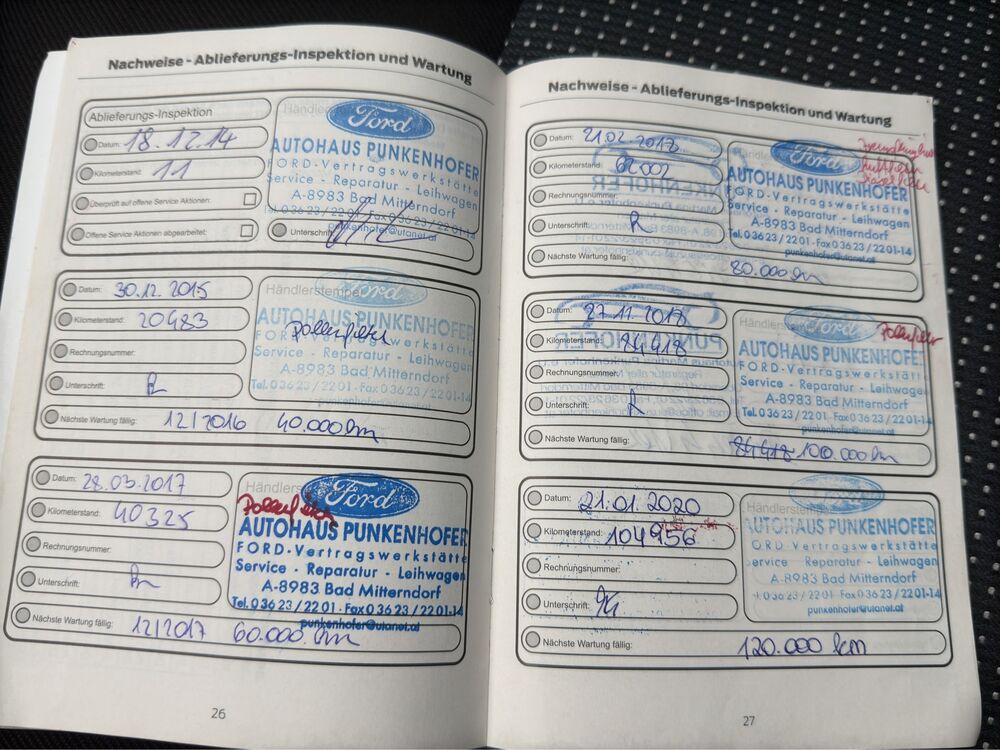 Nachweise - Ablieferungs-Inspektion und Wartung
Ablieferungs-Inspektion
Datum: 18.12.14
Kilometerstand: 11
Überprüft auf offene Service Aktionen:
Offene Service Aktionen abgearbeitet:
Ford
AUTOHAUS PUNKENHOFER
FORD-Vertragswerkstätte
Service - Reparatur - Leihwagen
A-8983 Bad Mitterndorf
Tel. 0 36 23 / 22 01 · Fax 0 36 23 / 22 01-14
punkenhofer@utanet.at
Unterschrift:
Datum: 30.12.2015
Kilometerstand: 20483
Rechnungsnummer:
Unterschrift:
Händlerstempel
Ford
Pollenfilter
AUTOHAUS PUNKENHOFER
FORD-Vertragswerkstätte
Service - Reparatur - Leihwagen
A-8983 Bad Mitterndorf
Tel. 0 36 23 / 22 01 · Fax 0 36 23 / 22 01-14
punkenhofer@utanet.at
Nächste Wartung fällig: 12/2016 40.000 km
Datum: 28.03.2017
Kilometerstand: 40325
Rechnungsnummer:
Unterschrift:
Ford
Pollenfilter
AUTOHAUS PUNKENHOFER
FORD-Vertragswerkstätte
Service - Reparatur - Leihwagen
A-8983 Bad Mitterndorf
Tel. 0 36 23 / 22 01 · Fax 0 36 23 / 22 01-14
punkenhofer@utanet.at
Nächste Wartung fällig: 12/2017 60.000 km
26
Nachweise - Ablieferungs-Inspektion und Wartung
Datum: 21.02.2018
Kilometerstand: 62002
Rechnungsnummer:
Unterschrift:
Ford
AUTOHAUS PUNKENHOFER
FORD-Vertragswerkstätte
Service - Reparatur - Leihwagen
A-8983 Bad Mitterndorf
Tel. 0 36 23 / 22 01 · Fax 0 36 23 / 22 01-14
punkenhofer@utanet.at
Nächste Wartung fällig: 80.000 km
Datum: 27.11.2018
Kilometerstand: 84418
Rechnungsnummer:
Unterschrift:
Ford
Pollenfilter
AUTOHAUS PUNKENHOFER
FORD-Vertragswerkstätte
Service - Reparatur - Leihwagen
A-8983 Bad Mitterndorf
Tel. 0 36 23 / 22 01 · Fax 0 36 23 / 22 01-14
punkenhofer@utanet.at
Nächste Wartung fällig: 84418 100.000 km
Datum: 21.01.2020
Kilometerstand: 104956
Rechnungsnummer:
Unterschrift:
AUTOHAUS PUNKENHOFER
FORD-Vertragswerkstätte
Service - Reparatur - Leihwagen
A-8983 Bad Mitterndorf
Tel. 0 36 23 / 22 01 · Fax 0 36 23 / 22 01-14
punkenhofer@utanet.at
Nächste Wartung fällig: 120.000 km
27